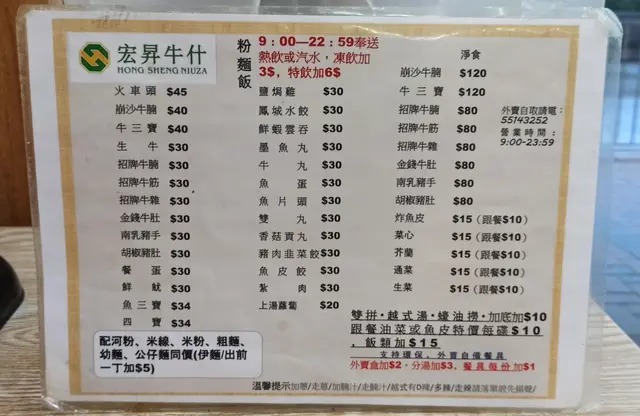 宏昇牛什
HONG SHENG NIUZA
粉麵飯
9：00—22：59奉送
熱飲或汽水，凍飲加
3$，特飲加6$
火車頭 $45
崩沙牛腩 $40
牛三寶 $40
生牛 $30
招牌牛腩 $30
招牌牛筋 $30
招牌牛雜 $30
金錢牛肚 $30
南乳豬手 $30
胡椒豬肚 $30
餐蛋 $30
鮮魷 $30
魚三寶 $34
四寶 $34
鹽焗雞 $30
鳳城水餃 $30
鮮蝦雲吞 $30
墨魚丸 $30
牛丸 $30
魚蛋 $30
魚片頭 $30
雙丸 $30
香菇貢丸 $30
豬肉韮菜餃 $30
魚皮餃 $30
紮肉 $30
上湯蘿蔔 $20
淨食
崩沙牛腩 $120
牛三寶 $120
招牌牛腩 $80
招牌牛筋 $80
招牌牛雜 $80
金錢牛肚 $80
南乳豬手 $80
胡椒豬肚 $80
炸魚皮 $15（跟餐$10）
菜心 $15（跟餐$10）
芥蘭 $15（跟餐$10）
通菜 $15（跟餐$10）
生菜 $15（跟餐$10）
外賣自取請電：
55143252
營業時間：
9:00-23:59
配河粉、米線、米粉、粗麵、
幼麵、公仔麵同價(伊麵/出前
一丁加$5)
雙拼·越式湯·蠔油撈·加底加$10
跟餐油菜或魚皮特價每碟$10
，飯類加$15
支持環保，外賣自備餐具
外賣盒加$2，分湯加$3。餐具每份加$1
溫馨提示加蔥/走蔥/加腩汁/走腩汁/越式有D辣/多辣/走辣請落單啟先錫聲/